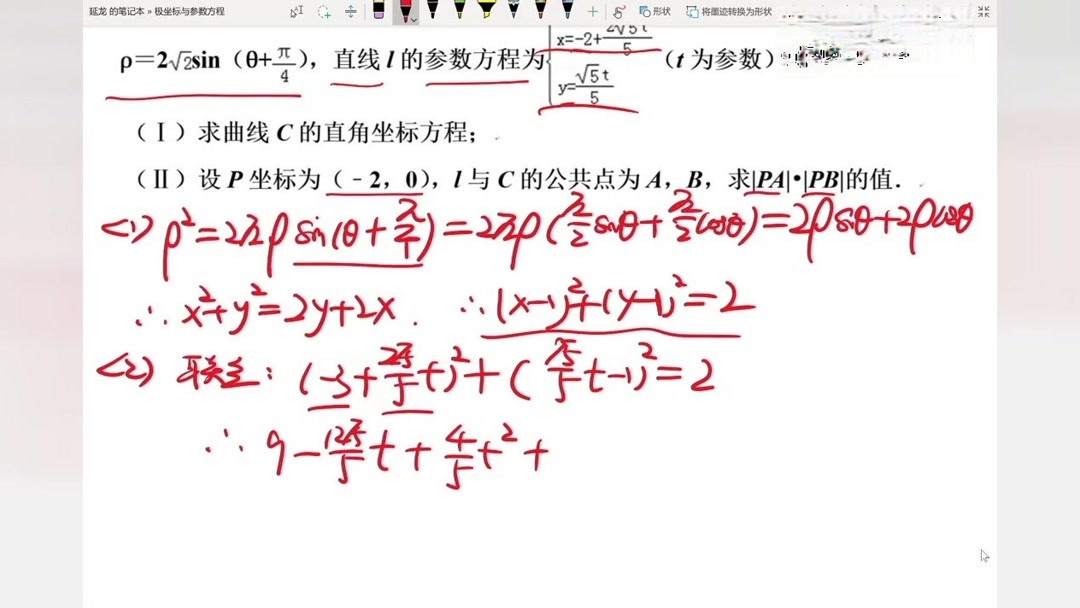 延龙 的笔记本 » 极坐标与参数方程
形状
将墨迹转换为形状
ρ=2√2sin（θ+π/4），直线 l 的参数方程为 { x=-2+2√5t/5 y=√5t/5 （t 为参数）
（Ⅰ）求曲线 C 的直角坐标方程；
（Ⅱ）设 P 坐标为（-2，0），l 与 C 的公共点为 A，B，求|PA|•|PB|的值．
<1> ρ²=2√2ρ sin(θ+π/4)=2√2ρ(√2/2 sinθ+√2/2 cosθ)=2ρsinθ+2ρcosθ
∴ x²+y²=2y+2x. ∴(x-1)²+(y-1)²=2
<2> 联立: (-3+2√5/5 t)²+(√5/5 t-1)²=2
∴ 9-12√5/5 t+4/5 t²+